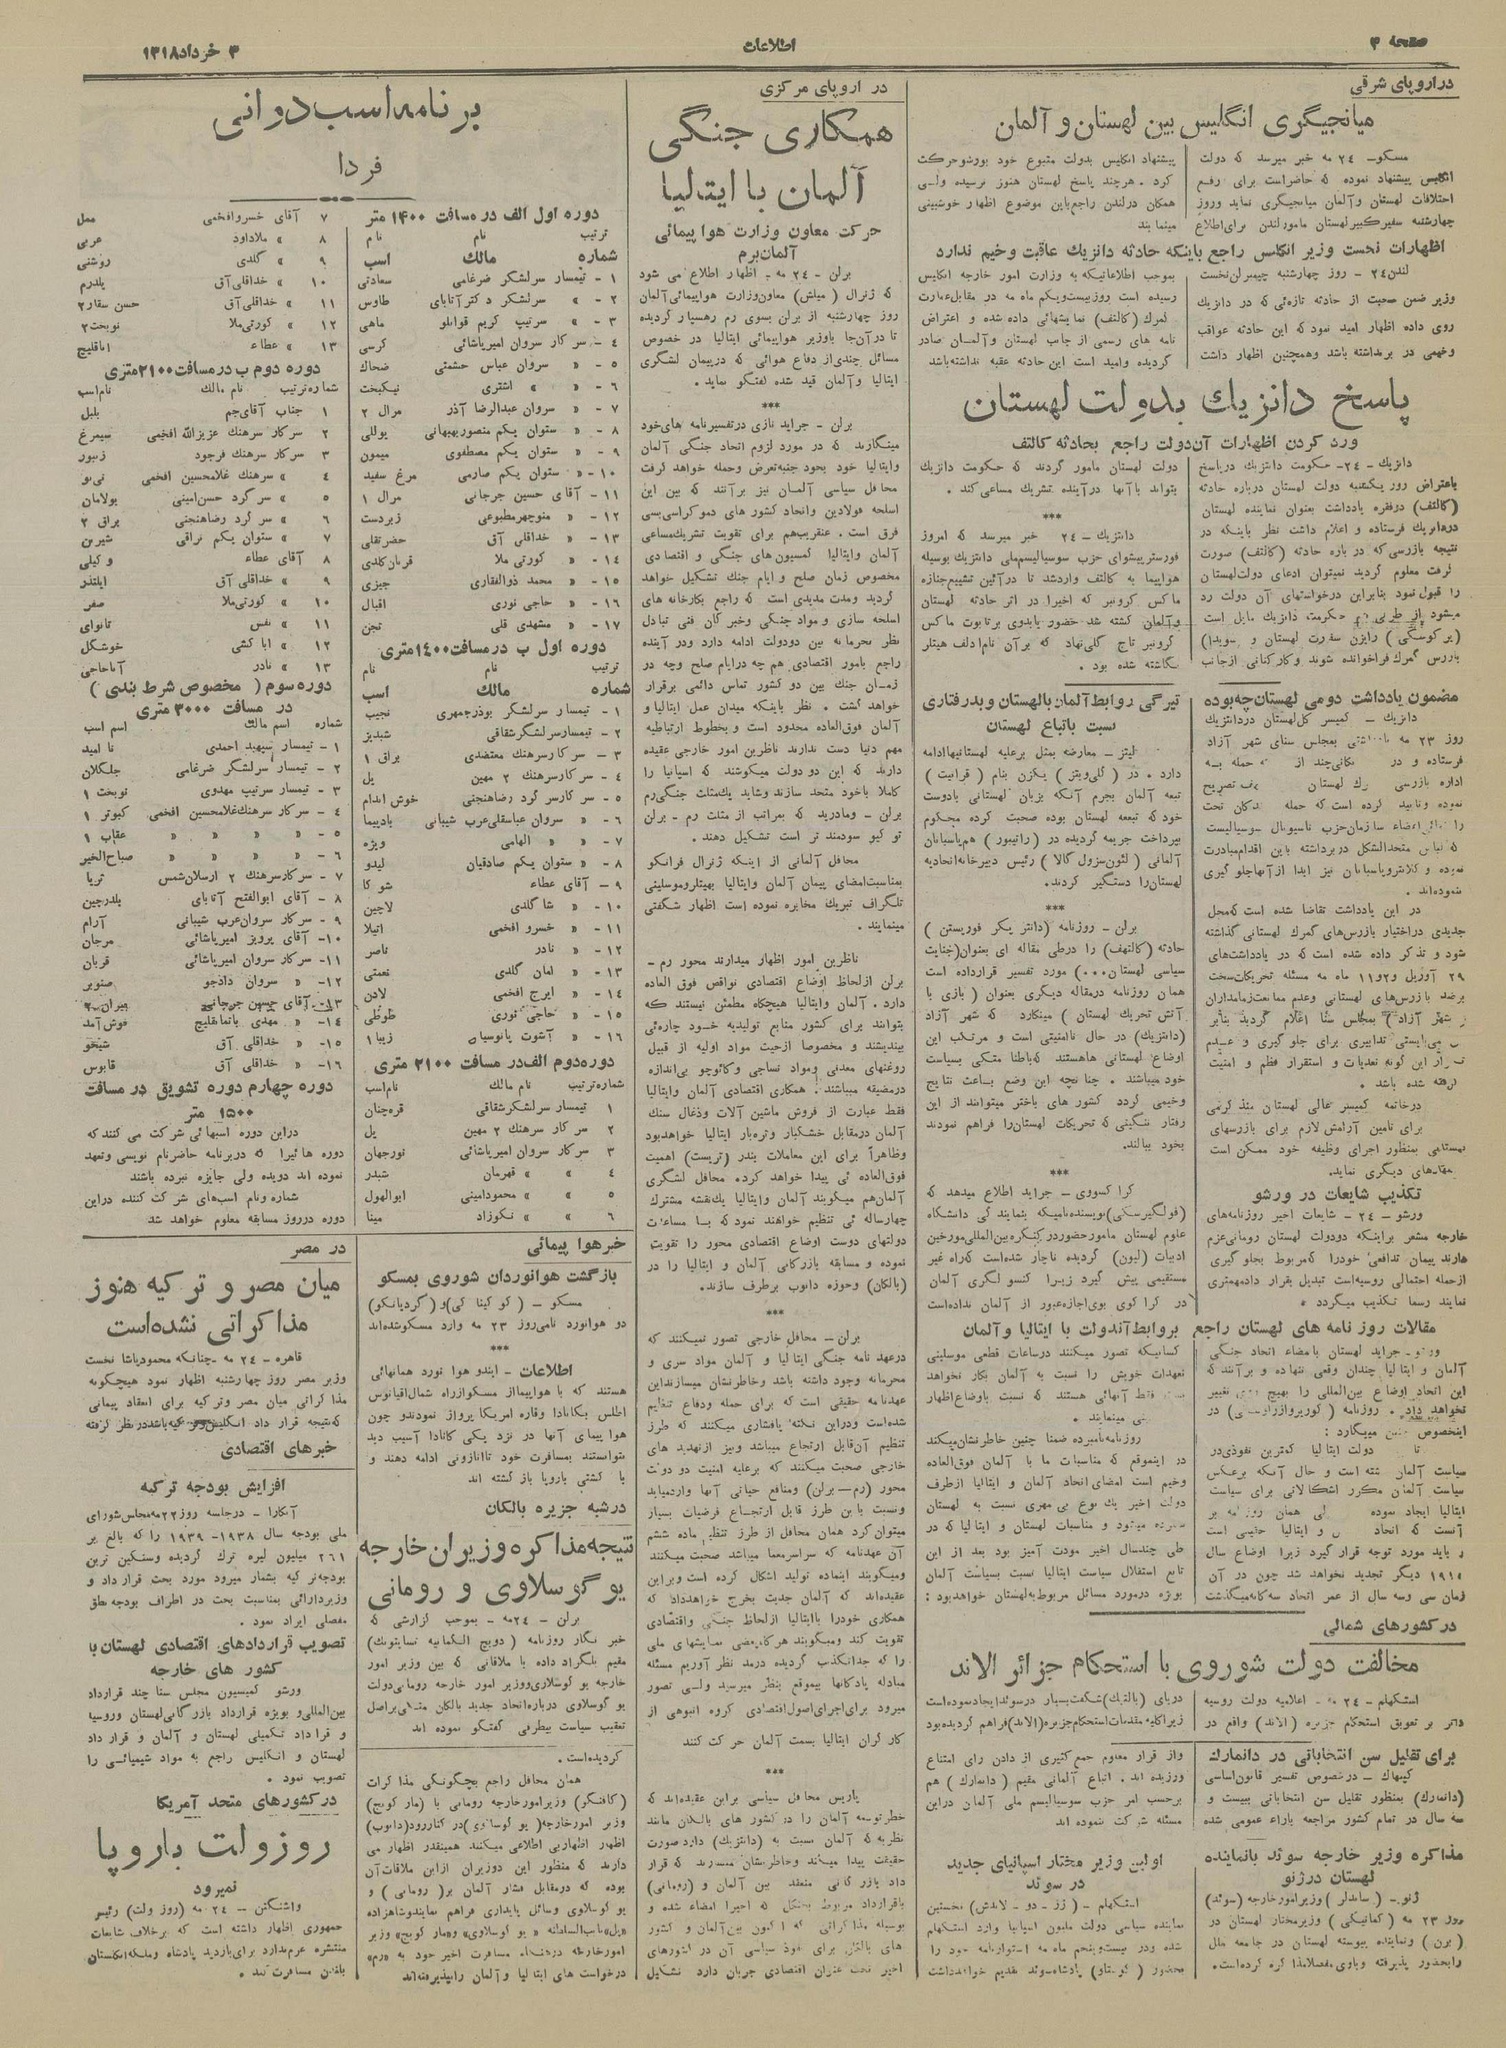 صفحه ۴
اطلاعات
۳ خرداد ۱۳۱۸
در اروپای شرقی
میانجیگری انگلیس بین لهستان و آلمان
مسکو- ۲۴ مه خبر میرسد که دولت
انگلیس پیشنهاد نموده که حاضراست برای رفع
اختلافات لهستان وآلمان میانجیگری نماید وروز
چهارشنبه سفیرکبیرلهستان مامورلندن برای اطلاع
پیشنهاد انگلیس بدولت متبوع خود بورشوحرکت
کرد . هرچند پاسخ لهستان هنوز نرسیده ولی
همکان درلندن راجع باین موضوع اظهار خوشبینی
مینمایند
اظهارات نخست وزیر انگلیس راجع باینکه حادثه دانزیك عاقبت وخیم ندارد
لندن ۲۴ - روز چهارشنبه چیمبرلن نخست
وزیر ضمن صحبت از حادثه تازه‌ئی که در دانزیك
روی داده اظهار امید نمود که این حادثه عواقب
وخیمی در بر نداشته باشد وهمچنین اظهار داشت
بموجب اطلاعاتیکه به وزارت امور خارجه انگلیس
رسیده است روز بیست ویکم ماه مه در مقابل عمارت
گمرك (کالتف) نمایشهائی داده شده و اعتراض
نامه های رسمی از جانب لهستان وآلمان صادر
گردیده وامید است این حادثه عقبه نداشته باشد
پاسخ دانزیك بدولت لهستان
ورد کردن اظهارات آن دولت راجع بحادثه کالتف
دانزیك - ۲۴ - حکومت دانتزیك درپاسخ
باعتراض روز یکشنبه دولت لهستان درباره حادثه
(کالتف) دوفقره یادداشت بعنوان نماینده لهستان
دردانزیك فرستاده و اعلام داشت نظر باینکه در
نتیجه بازرسی که در باره حادثه (کالتف) صورت
گرفت معلوم گردید نمیتوان ادعای دولت لهستان
را قبول نمود بنابراین درخواستهای آن دولت رد
میشود
(پرکوسکی) رایزن سفارت لهستان و سویدا)
بازرس گمرك فراخوانده شوند وکارکنانی ازجانب
دولت لهستان مامور گردند که حکومت دانزیك
بتواند باآنها درآینده تشریك مساعی کند .
***
دانتزیك - ۲۴ خبر میرسد که امروز
فورستر پیشوای حزب سوسیالیسم ملی دانتزیك بوسیله
هواپیما به کالتف واردشد تا درآئین تشییع جنازه
ماکس کروتبر که اخیرا در اثر حادثه لهستان
وآلمانی کشته شد حضور یابد وی برتابوت ماکس
گروتبر تاج گلی نهاد که برآن نام ادلف هیتلر
نگاشته شده بود .
مضمون یادداشت دومی لهستان چه بوده
دانزیك - کمیسر کل لهستان دردانتزیك
روز ۲۳ مه بمجلس سنای شهر آزاد
اداره بازرسی لهستان تصریح
نموده وتایید کرده است که حمله کنندگان تحت
را اعضاء سازمان حزب ناسیونال سوسیالیست
که لباس متحدالشکل دربرداشته باین اقدام مبادرت
نموده و کلانتر وپاسبانان نیز ابدا از آنها جلوگیری
ننموده‌اند .
در این یادداشت تقاضا شده است که محل
جدیدی دراختیار بازرس‌های گمرك لهستانی گذاشته
شود و تذکر داده شده که در یادداشت‌های
۲۹ آوریل و ۲ و ۱۱ ماه مه مسئله تحریکات سخت
برضد بازرس‌های لهستانی وعدم ممانعت زمامداران
شهر آزاد) بمجلس سنا اعلام گردید بنابر
بایستی تدابیری برای جلو گیری و عدم
این گونه تعدیات و استقرار نظم و امنیت
گرفته شده باشد .
درخاتمه کمیسر عالی لهستان متذکر می
برای تامین آرامش لازم برای بازرسهای
لهستانی بمنظور اجرای وظیفه خود ممکن است
تقاضاهای دیگری نماید.
تیرگی روابط آلمان بالهستان وبدرفتاری
نسبت باتباع لهستان
لیتز - معارضه بمثل برعلیه لهستانیها ادامه
دارد . در ( گلی ویتز ) یکزن بنام ( قرانیت )
تبعه آلمان بجرم آنکه بزبان لهستانی بادوست
خود که تبعه لهستان بوده صحبت کرده محکوم
بپرداخت جریمه گردیده در (راتیبور) هم پاسبانان
آلمانی ( لئون سزول گالا ) رئیس دبیرخانه اتحادیه
لهستان‌را دستگیر کردند.
***
برلن - روزنامه (دانتز یکر فورپستن)
حادثه (کالتهف) را درطی مقاله ای بعنوان(جنایت
سیاسی لهستان...) مورد تفسیر قرارداده است
همان روزنامه درمقاله دیگری بعنوان ( بازی با
آتش تحریك لهستان ) مینگارد که شهر آزاد
(دانتزیك) در حال ناامنیتی است و مرتکب این
اوضاع لهستانی ها هستند که باطنا متکی بسیاست
خود میباشند . چنا نچه این وضع باعث نتایج
وخیمی گردد کشور های باختر میتوانند از این
رفتار ننگینی که تحریکات لهستان‌را فراهم نمودند
بخود ببالند.
***
کراکسووی - جراید اطلاع میدهد که
(فولگیرسکی) نویسنده نامیکه بنمایند گی دانشگاه
علوم لهستان مامورحضوردر کنگره بین‌المللی مورخین
ادبیات (لیون) گردیده ناچار شده است که راه غیر
مستقیمی پیش گیرد زیرا کنسو لگری آلمان
در کرا کوی بوی اجازه عبور از آلمان نداده است
تکذیب شایعات در ورشو
ورشو - ۲۴ - شایعات اخیر روزنامه‌های
خارجه مشعر براینکه دودولت لهستان رومانی عزم
دارند پیمان تدافعی خودرا که مربوط بجلو گیری
ازحمله احتمالی روسیه است تبدیل بقرار دادمهمتری
نمایند رسما تکذیب میگردد *
مقالات روز نامه های لهستان راجع بروابط آندولت با ایتالیا وآلمان
ورشو- جراید لهستان بامضاء اتحاد جنگی
آلمان و ایتالیا چندان وقعی ننهاده و برآنند که
این اتحاد اوضاع بین‌المللی را بهیچ تغییر
نخواهد داد . روزنامه ( کوریروازراوسکی) در
اینخصوص چنین مینگارد :
دولت ایتالیا کمترین نفوذی در
سیاست آلمان شته است و حال آنکه برعکس
سیاست آلمان مکرر اشکالاتی برای سیاست
ایتالیا ایجاد نموده همان روزنامه بر
آنست که اتحاد و ایتالیا حقیقی است
باید مورد توجه قرار گیرد زیرا اوضاع سال
۱۹۱۵ دیگر تجدید نخواهد شد چون در آن
زمان سی وسه سال از عمر اتحاد سه گانه میگذشت
کسانیکه تصور میکنند درساعات قطعی موسلینی
تعهدات خویش را نسبت به آلمان بکار نخواهد
فقط آنهائی هستند که نسبت باوضاع اظهار
مینمایند .
روزنامه نامبرده ضمنا چنین خاطر نشان میکند
در اینموقع که مناسبات ما با آلمان فوق‌العاده
وخیم است امضای اتحاد آلمان و ایتالیا ازطرف
دولت اخیر یك نوع بی مهری نسبت به لهستان
میشود و مناسبات لهستان و ایتالیا که در
طی چندسال اخیر مودت آمیز بود بعد از این
تابع استقلال سیاست ایتالیا نسبت بسیاست آلمان
بویژه درمورد مسائل مربوط به لهستان خواهد بود :
در کشورهای شمالی
مخالفت دولت شوروی با استحکام جزائر الاند
استکهلم - ۲۴ مه - اعلامیه دولت روسیه
دائر بر تعویق استحکام جزیره (الاند) واقع در
دریای (بالتیك) شگفت بسیار درسوئد ایجاد نموده است
زیرا کلیه مقدمات استحکام جزیره(الاند) فراهم گردیده بود
برای تقلیل سن انتخاباتی در دانمارك
کپنهاك - درخصوص تفسیر قانون اساسی
(دانمارك) بمنظور تقلیل سن انتخاباتی ببیست و
سه سال در تمام کشور مراجعه باراء عمومی شده
واز قرار معلوم جمع کثیری از دادن رای امتناع
ورزیده اند . اتباع آلمانی مقیم (دانمارك) هم
برحسب امر حزب سوسیالیسم ملی آلمان دراین
مسئله شرکت ننموده اند
مذاکره وزیر خارجه سوئد بانماینده
لهستان درژنو
ژنو - ( ساندلر ) وزیر امورخارجه (سوئد)
روز ۲۳ مه (کمانیکی) وزیرمختار لهستان در
(برن) ونماینده پیوسته لهستان در جامعه ملل
رابحضور پذیرفته وباوی مفصلا مذاکره کرده است.
اولین وزیر مختار اسپانیای جدید
در سوئد
استکهلم - ( زز - دو - لاندش) نخستین
نماینده سیاسی دولت ملیون اسپانیا وارد استکهلم
شده ودر بیست وپنجم ماه مه استوارنامه خود را
بحضور ( گوستاو) پادشاه سوئد تقدیم خواهد داشت
در اروپای مرکزی
همکاری جنگی
آلمان با ایتالیا
حرکت معاون وزارت هواپیمائی
آلمان برم
برلن - ۲۴ مه - اظهار اطلاع می شود
که ژنرال (میلش) معاون وزارت هواپیمائی آلمان
روز چهارشنبه از برلن بسوی رم رهسپار گردیده
تا درآن‌جا باوزیر هواپیمائی ایتالیا در خصوص
مسائل چندی از دفاع هوائی که درپیمان لشگری
ایتالیا وآلمان قید شده گفتگو نماید .
***
برلن - جراید نازی درتفسیرنامه های خود
مینگارند که در مورد لزوم اتحاد جنگی آلمان
وایتالیا خود بخود جنبه تعرض وحمله خواهد گرفت
محافل سیاسی آلمان نیز برآنند که بین این
اسلحه هولادین واتحاد کشور های دموکراسی بسی
فرق است . عنقریب هم برای تقویت تشریك مساعی
آلمان وایتالیا کمسیون های جنگی و اقتصادی
مخصوص زمان صلح و ایام جنك تشکیل خواهد
گردید ومدت مدیدی است که راجع بکارخانه های
اسلحه سازی و مواد جنگی وخبرگان فنی تبادل
نظر محرمانه بین دودولت ادامه دارد ودر آینده
راجع بامور اقتصادی هم چه درایام صلح وچه در
زمان جنك بین دو کشور تماس دائمی برقرار
خواهد گشت . نظر باینکه میدان عمل ایتالیا و
آلمان فوق‌العاده محدود است و بخطوط ارتباطیه
مهم دنیا دست ندارند ناظرین امور خارجی عقیده
دارند که این دو دولت میکوشند که اسپانیا را
کاملا باخود متحد سازند وشاید یك مثلث جنگی رم
برلن - ومادرید که بمراتب از مثلث رم - برلن
توکیو سودمند تر است تشکیل دهند .
محافل آلمانی از اینکه ژنرال فرانکو
بمناسبت امضای پیمان آلمان وایتالیا بهیتلروموسلینی
تلگراف تبریك مخابره نموده است اظهار شگفتی
مینمایند .
ناظرین امور اظهار میدارند محور رم -
برلن ازلحاظ اوضاع اقتصادی نواقص فوق العاده
دارد . آلمان وایتالیا هیچگاه مطمئن نیستند که
بتوانند برای کشور منابع تولیدیه خود چاره‌ئی
بیندیشند و مخصوصا ازحیث مواد اولیه از قبیل
روغنهای معدنی ومواد نساجی وکائوچو بی‌اندازه
درمضیقه میباشند . همکاری اقتصادی آلمان وایتالیا
فقط عبارت از فروش ماشین آلات وذغال سنك
آلمان درمقابل خشکبار وتره‌بار ایتالیا خواهدبود
وظاهراً برای این معاملات بندر (تریست) اهمیت
فوق‌العاده ئی پیدا خواهد کرد. محافل لشگری
آلمان هم میگویند آلمان وایتالیا یك نقشه مشترك
چهارساله ئی تنظیم خواهند نمود که با مساعدت
دولتهای دوست اوضاع اقتصادی محور را تقویت
نموده و مسابقه بازرگانی آلمان و ایتالیا را در
(بالکان) وحوزه دانوب برطرف سازند.
***
برلن - محافل خارجی تصور نمیکنند که
درعهد نامه جنگی ایتالیا و آلمان مواد سری و
محرمانه وجود داشته باشد وخاطرنشان میسازنداین
عهدنامه حقیقی است که برای حمله ودفاع تنظیم
شده است ودراین نکته پافشاری میکنند که طرز
تنظیم آن قابل ارتجاع میباشد ونیز ازتهدید های
خارجی صحبت میکنند که برعلیه امنیت دو دولت
محور (رم - برلن) ومنافع حیاتی آنها وارد میاید
ونسبت با بن طرز قابل ارتجاع فرضیات بسیار
میتوان کرد همان محافل از طرز تنظیم ماده ششم
آن عهدنامه که سراسر معما میباشد صحبت میکنند
ومیگویند اینماده تولید اشکال کرده است وبراین
عقیده‌اند که آلمان جدیت بخرج خواهد داد که
همکاری خودرا باایتالیا ازلحاظ جنگی واقتصادی
تقویت کند ومیگویند هرگاه بعضی نمایشهای ملی
را که جدا تکذیب گردیده درمد نظر آوریم مسئله
مبادله پادگانها بیموقع بنظر میرسید ولی تصور
میرود برای اجرای اصول اقتصادی گروه انبوهی از
کارگران ایتالیا بسمت آلمان حرکت کنند
***
پاریس محافل سیاسی براین عقیده‌اند که
خطر توسعه آلمان را در کشور های بالکان مانند
نظریه که آلمان نسبت به (دانتزیك) دارد صورت
حقیقت پیدا میکند وخاطر نشان میسازند که قرار
داد بازرگانی منعقد بین آلمان و (رومانی)
که اخیرا امضاء شده و
بوسیله مذاکراتی که اکنون بین آلمان و کشور
های بالکان برای نفوذ سیاسی آن در کشورهای
اخیر تحت عنوان اقتصادی جریان دارد تشکیل
گردیده است .
برنامه اسب دوانی
فردا
دوره اول الف در مسافت ۱۴۰۰ متر
ترتیب نام نام
شماره مالك اسب
۱ - تیمسار سرلشکر ضرغامی سعادتی
۲ - « سرلشگر دکتر آتابای طاوس
۳ - « سرتیپ کریم قوانلو ماهی
۴ - سرکار سروان امیرپاشائی کرسی
۵ - « سروان عباس حشمتی ضحاك
۶ - « « اشتری نیکبخت
۷ - « سروان عبدالرضا آذر مرال ۲
۸ - « ستوان یکم منصوربهبهانی یوللی
۹ - « ستوان یکم مصطفوی میمون
۱۰ - « ستوان یکم صارمی مرغ سفید
۱۱ - آقای حسین جرجانی مرال ۱
۱۲ - « منوچهر مطبوعی زبردست
۱۳ - « خداقلی آق حضرتقلی
۱۴ - « کورتی ملا قرمان گلدی
۱۵ - « محمد ذوالفقاری جیزی
۱۶ - « حاجی نوری اقبال
۱۷ - « مشهدی قلی تجن
دوره اول ب در مسافت ۱۴۰۰ متری
ترتیب نام نام
شماره مالك اسب
۱ - تیمسار سرلشگر بوذرجمهری نجیب
۲ - تیمسار سرلشگر شقاقی شبدیز
۳ - سرکار سرهنك معتضدی براق ۱
۴ - سرکار سرهنك ۲ مهین یل
۵ - سرکار سرگرد رضاهنجنی خوش اندام
۶ - « سروان عباسقلی عرب شیبانی بادپیما
۷ - « « الهامی ویژه
۸ - « ستوان یکم صادقیان لیدو
۹ - آقای عطاء شوکا
۱۰ - « شاگلدی لاچین
۱۱ - « خسرو افخمی اتیلا
۱۲ - « نادر ناصر
۱۳ - « امان گلدی نعمتی
۱۴ - « ایرج افخمی لادن
۱۵ - « حاجی نوری طوطی
۱۶ - « آشوت یانوسیان زیبا ۱
دوره دوم الف در مسافت ۲۱۰۰ متری
شماره ترتیب نام مالك نام اسب
۱ تیمسار سرلشگر شقاقی قره‌چنان
۲ سرکار سرهنك ۲ مهین یل
۳ سرکار سروان امیرپاشائی نورجهان
۴ « « قهرمان شبدر
۵ « « محمودامینی ابوالهول
۶ « « نکوزاد مینا
۷ آقای خسروافخمی ممل
۸ « ملاداود عربی
۹ « گلدی روشنی
۱۰ « خداقلی آق یلدرم
۱۱ « خداقلی آق حسن سقار ۲
۱۲ « کورتی ملا نوبخت ۲
۱۳ « عطاء اماقلیچ
دوره دوم ب در مسافت ۲۱۰۰ متری
شماره ترتیب نام مالك نام اسب
۱ جناب آقای جم بلبل
۲ سرکار سرهنك عزیزالله افخمی سیمرغ
۳ سرکار سرهنك فرجود زنبور
۴ « سرهنك غلامحسین افخمی نی‌نو
۵ « سرگرد حسن امینی بولامان
۶ « سرگرد رضاهنجنی براق ۲
۷ « ستوان یکم نراقی شیرین
۸ آقای عطاء وکیلی
۹ « خداقلی آق ایلتذر
۱۰ « کورتی ملا صفر
۱۱ « نفس تانوای
۱۲ « ابا کشی خوشگل
۱۳ « نادر آناحاجی
دوره سوم ( مخصوص شرط بندی )
در مسافت ۳۰۰۰ متری
شماره اسم مالك اسم اسب
۱ - تیمسار سپهبد احمدی ناامید
۲ - تیمسار سرلشکر ضرغامی جلگلان
۳ - تیمسار سرتیپ مهدوی نوبخت ۱
۴ - سرکار سرهنك غلامحسین افخمی کبوتر ۱
۵ - « « « « عقاب ۱
۶ - « « « « صباح الخیر
۷ - سرکار سرهنك ۲ ارسلان شمس ثریا
۸ - آقای ابوالفتح آتابای یلدرچین
۹ - سرکار سروان عرب شیبانی آرام
۱۰ - آقای پرویز امیرپاشائی مرجان
۱۱ - سرکار سروان امیرپاشائی قربان
۱۲ - « سروان دادجو صنوبر
۱۳ - آقای حسین جرجانی
۱۴ - « مهدی بانماقلیچ خوش آمد
۱۵ - « خداقلی آق شیخو
۱۶ - « خداقلی آق قابوس
دوره چهارم دوره تشویق در مسافت
۱۵۰۰ متر
دراین دوره اسبهائی شرکت می کنند که
دوره هائیرا که دربرنامه حاضرنام نویسی وتعهد
نموده اند دویده ولی جایزه نبرده باشند
شماره ونام اسب‌های شرکت کننده دراین
دوره درروز مسابقه معلوم خواهد شد
خبر هوا پیمائی
بازگشت هوانوردان شوروی بمسکو
مسکو - ( کوکینا کی) و (گردیانکو)
دو هوانورد نامی روز ۲۳ مه وارد مسکو شده‌اند
***
اطلاعات - ایندو هوا نورد همانهائی
هستند که با هواپیما از مسکو از راه شمال اقیانوس
اطلس بکانادا وقاره امریکا پرواز نمودند چون
هواپیمای آنها در نزد یکی کانادا آسیب دید
نتوانستند بمسافرت خود تا اتازونی ادامه دهند و
با کشتی باروپا باز گشته اند
درشبه جزیره بالکان
نتیجه مذاکره وزیران خارجه
یوگوسلاوی و رومانی
برلن - ۲۴ مه - بموجب گزارشی که
خبر نگار روزنامه ( دویچ الگمانیه تسایتونك)
مقیم بلگراد داده با ملاقاتی که بین وزیر امور
خارجه یوگوسلاوی ووزیر امور خارجه رومانی دولت
یو گوسلاوی درباره اتحاد جدید بالکان متکی براصل
تعقیب سیاست بیطرفی گفتگو نموده اند
همان محافل راجع بچگونگی مذاکرات
(کافنکر) وزیر امور خارجه رومانی با (مارکویچ)
وزیر امورخارجه( یوگوسلاوی) در کنار رود(دانوب)
اظهار اظهار بی اطلاعی میکنند همینقدر اظهار می
دارند که منظور این دووزیران ازاین ملاقات آن
بوده که درمقابل فشار آلمان بر( رومانی ) و
یو گوسلاوی وسائل پایداری فراهم نمایند وشاهزاده
«پل» نایب السلطنه « یوگوسلاوی» و«مارکویچ» وزیر
امورخارجه درنتیجه مسافرت اخیر خود به «رم»
درخواست های ایتالیا وآلمان را نپذیرفته‌اند
در مصر
میان مصر و ترکیه هنوز
مذاکراتی نشده است
قاهره - ۲۴ مه - چنانکه محمودپاشا نخست
وزیر مصر روز چهارشنبه اظهار نمود هیچگونه
مذاکراتی میان مصر وترکیه برای انعقاد پیمانی
که نتیجه قرار داد انگلیس وترکیه باشد درنظر گرفته
خبرهای اقتصادی
افزایش بودجه ترکیه
آنکارا - درجلسه روز ۲۲ مه مجلس شورای
ملی بودجه سال ۱۹۳۸ - ۱۹۳۹ را که بالغ بر
۲۶۱ میلیون لیره ترك گردیده وسنگین ترین
بودجه ترکیه بشمار میرود مورد بحث قرار داد و
وزیردارائی بمناسبت بحث در اطراف بودجه نطق
مفصلی ایراد نمود .
تصویب قراردادهای اقتصادی لهستان با
کشور های خارجه
ورشو کمیسیون مجلس سنا چند قرارداد
بین‌المللی و بویژه قرارداد بازرگانی لهستان وروسیا
و قراداد تکمیلی لهستان و آلمان و قرار داد
لهستان و انگلیس راجع به مواد شیمیائی را
تصویب نمود .
در کشورهای متحد آمریکا
روزولت باروپا
نمیرود
واشنگتن - ۲۴ مه (روز ولت) رئیس
جمهوری اظهار داشته است که برخلاف شایعات
منتشره عزم ندارد برای بازدید پادشاه وملکه انگلستان
بلندن مسافرت کند .